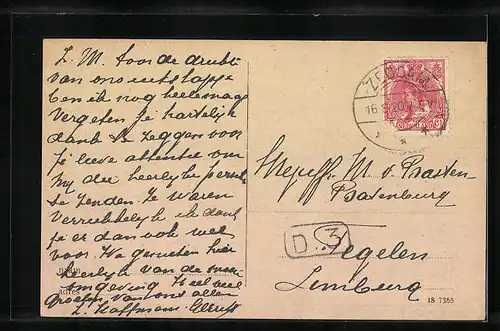 L. M. Door de drukte
van ons uitstapje
ben ik nog heelemaal
Vergeten je hartelijk
dank te zeggen voor
je lieve attentie om
mij die heerlijke
te zenden. Ze waren
Verrukkelijk ik dank
je er dan ook wel
voor. We genieten hier
heerlijk van de mooie
omgeving. Heel veel
groeten van ons allen
L. Hoffmann
ZEDDAM
NEDERLAND
Mejuffr. M. v. Basten
Batenburg
D 3
Tegelen
Limburg
18 7365